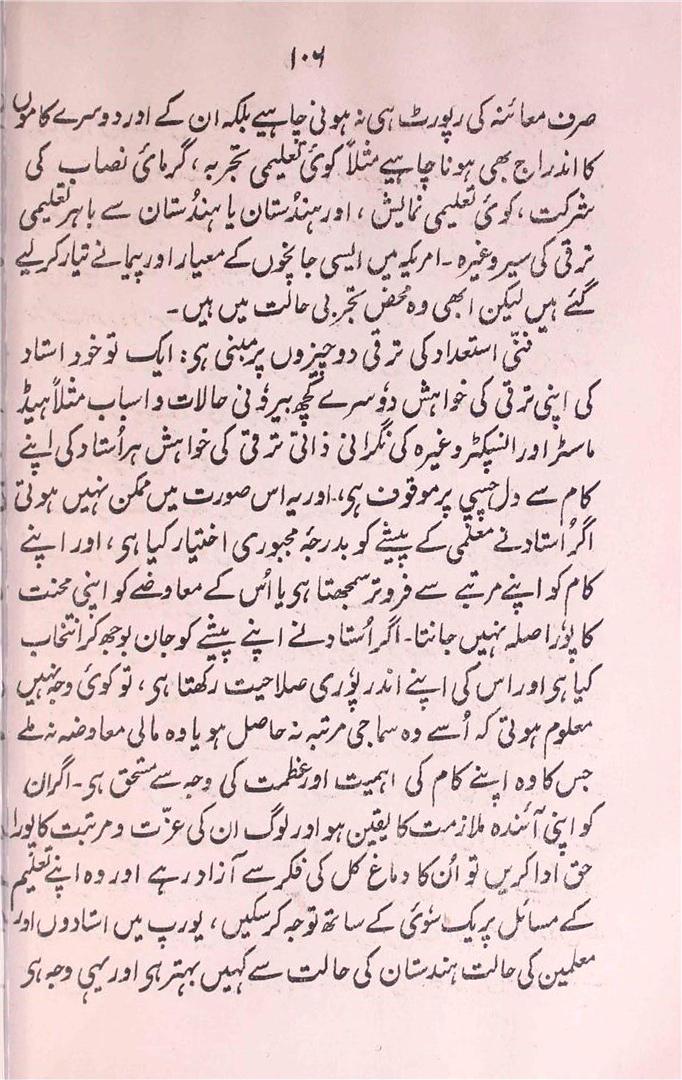 ۱۰۶
صرف معائنہ کی رپورٹ ہی نہ ہونی چاہیے بلکہ ان کے اور دوسرے کاموں
کا اندراج بھی ہونا چاہیے مثلاً کوئی تعلیمی تجربہ، گرمائی نصاب کی
شرکت، کوئی تعلیمی نمایش، اور ہندُستان یا ہندُستان سے باہر تعلیمی
ترقی کی سیر وغیرہ۔ امریکہ میں ایسی جانچوں کے معیار اور پیمانے تیار کرلیے
گئے ہیں لیکن ابھی وہ محض تجربی حالت میں ہیں۔
فنّی استعداد کی ترقی دو چیزوں پر مبنی ہی: ایک تو خود استاد
کی اپنی ترقی کی خواہش دوٗسرے کچھ بیروٗنی حالات و اسباب مثلاً ہیڈ
ماسٹر اور انسپکٹر وغیرہ کی نگرانی ذاتی ترقی کی خواہش ہر اُستاد کی اپنے
کام سے دل چسپی پر موقوف ہی، اور یہ اس صورت میں ممکن نہیں ہوتی
اگر اُستاد نے معلّمی کے پیشے کو بدرجۂ مجبوری اختیار کیا ہی، اور اپنے
کام کو اپنے مرتبے سے فروتر سمجھتا ہی یا اُس کے معاوضے کو اپنی محنت
کا پوٗرا صلہ نہیں جانتا۔ اگر اُستاد نے اپنے پیشے کو جان بوجھ کر انتخاب
کیا ہی اور اس کی اپنے اندر پوٗری صلاحیت رکھتا ہی، تو کوئی وجہ نہیں
معلوم ہوتی کہ اُسے وہ سماجی مرتبہ نہ حاصل ہو یا وہ مالی معاوضہ نہ ملے
جس کا وہ اپنے کام کی اہمیت اور عظمت کی وجہ سے مستحق ہی۔ اگر ان
کو اپنی آئندہ ملازمت کا یقین ہو اور لوگ ان کی عزّت و مرتبت کا پورا
حق ادا کریں تو اُن کا دماغ کل کی فکر سے آزاد رہے اور وہ اپنے تعلیم
کے مسائل پر یک سوٗئی کے ساتھ توجہ کرسکیں، یورپ میں استادوں اور
معلمین کی حالت ہندستان کی حالت سے کہیں بہتر ہی اور یہی وجہ ہی